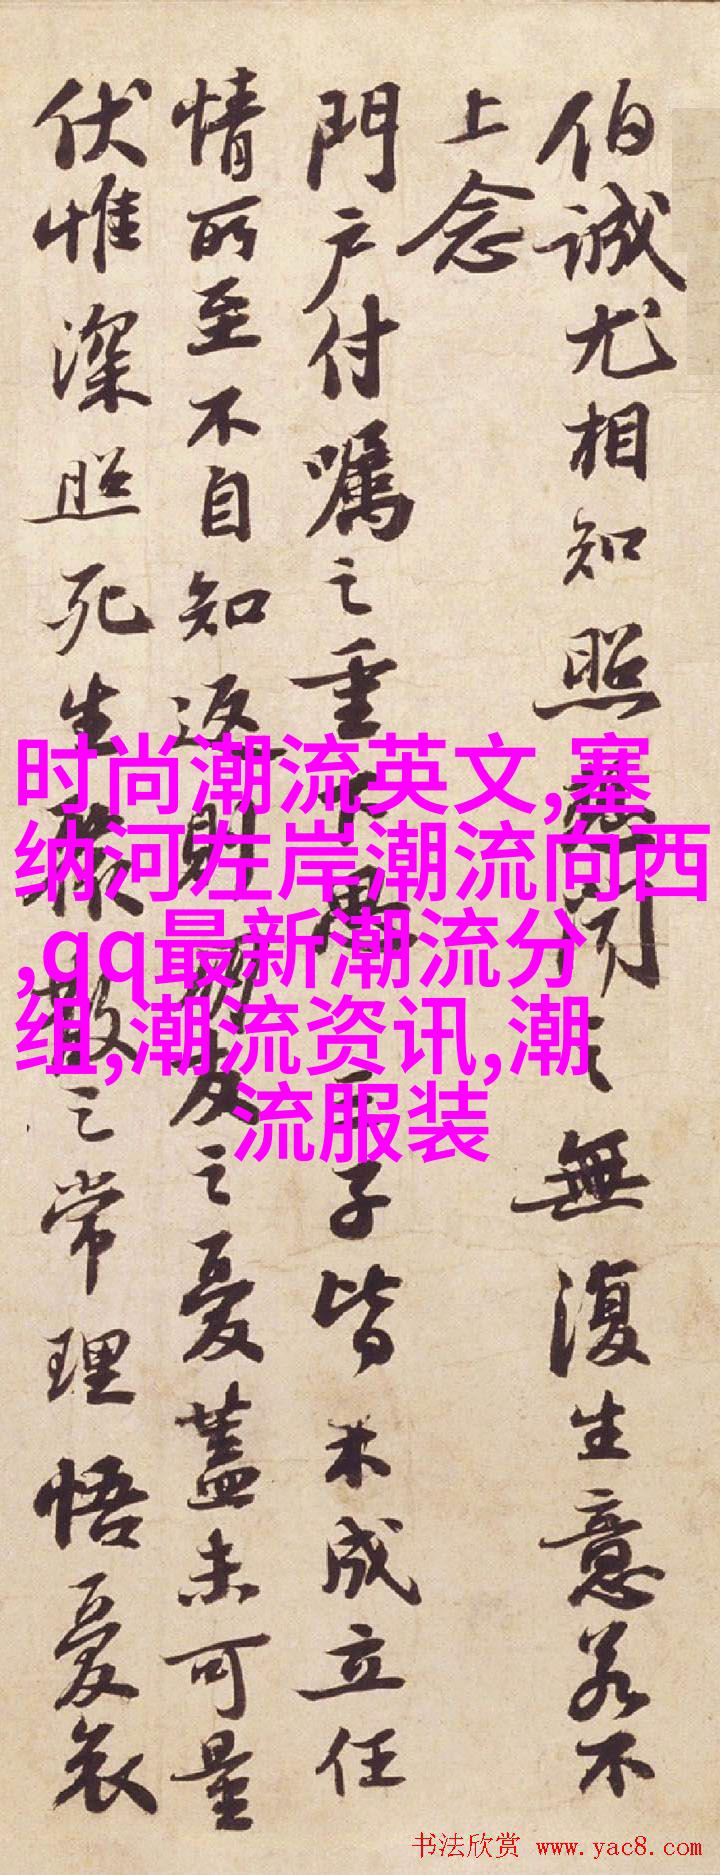 伯誠尤相知照聞之無復生意若不
上念
門戶付囑之重下子皆未成立任
情所至不自知返則朋友之憂蓋未可量
伏惟深照死生聚散之常理悟憂哀
时尚潮流英文,塞
纳河左岸潮流向西
,qq最新潮流分
组,潮流资讯,潮
流服装
书法欣赏 www.yac8.com